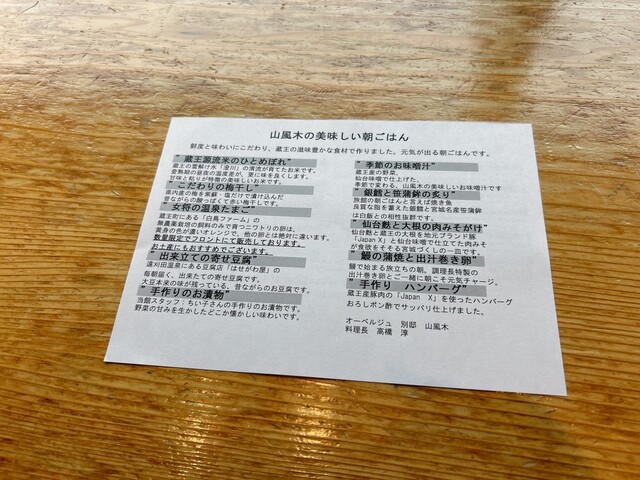 山風木の美味しい朝ごはん
鮮度と味わいにこだわり、蔵王の滋味豊かな食材で作りました。元気が出る朝ごはんです。
”蔵王源流米のひとめぼれ”
蔵王の雪解け水「澄川」の清流が育てたお米です。
登熟期の昼夜の温度差が、更に味を良くします。
甘味と粘りが特徴の美味しいお米です。
”こだわりの梅干し”
県内産の梅を紫蘇・塩だけで漬け込んだ
昔ながらの酸っぱくて赤い梅干しです。
”女将の温泉たまご”
蔵王町にある「白鳥ファーム」の
無農薬栽培の飼料のみで育つニワトリの卵は、
黄身の色が濃いオレンジで、他の卵とは絶対に違います。
数量限定でフロントにて販売しております。
お土産にもおすすめでございます。
”出来立ての寄せ豆腐”
遠刈田温泉にある豆腐店「はせがわ屋」の
毎朝届く、出来たての寄せ豆腐です。
大豆本来の味が残っている、昔ながらのお豆腐です。
”手作りのお漬物”
当館スタッフ：ちい子さんの手作りのお漬物です。
野菜の甘みを生かしたどこか懐かしい味わいです。
”季節のお味噌汁”
蔵王産の野菜、
仙台味噌で仕上げた、
季節で変わる、山風木の美味しいお味噌汁です
”銀鱈と笹蒲鉾の炙り”
旅館の朝ごはんと言えば焼き魚
良質な脂を蓄えた銀鱈と宮城名産笹蒲鉾
は白飯との相性抜群です。
”仙台麩と大根の肉みそがけ”
仙台麩と蔵王の大根を地元ブランド豚
「Japan X」と仙台味噌で仕立てた肉みそ
が食欲をそそる宮城づくしの一皿です。
”鰻の蒲焼と出汁巻き卵”
鰻で始まる旅立ちの朝。調理長特製の
出汁巻き卵とご一緒に朝こそ元気チャージ。
”手作り　ハンバーグ”
蔵王産豚肉の「Japan　X」を使ったハンバーグ
おろしポン酢でサッパリ仕上げました。
オーベルジュ　別邸　山風木
料理長　高橋　淳